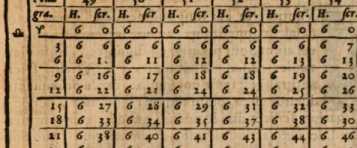 gra. H. ſcr. H. ſcr. H. ſcr. H. ſcr. H. ſcr. H. ſcr.
♎ ♈ 6 0 6 0 6 0 6 0 6 0 6 0
3 6 6 6 6 6 6 6 6 6 6 6 7
6 6 6 11 6 12 6 12 6 13 6 13
9 6 16 6 17 6 18 6 18 6 19 6 20
12 6 22 6 6 24 6 24 6 25 6 26
15 6 27 6 28 6 29 6 31 6 32 6 33
18 6 33 6 34 6 35 6 37 6 38 6
21 6 38 6 40 6 41 6 43 6 44 6 46